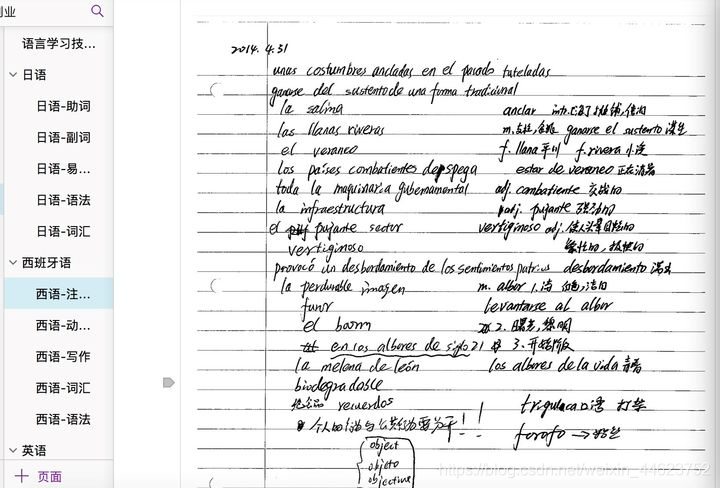 创业
语言学习技...
日语
日语-助词
日语-副词
日语-易...
日语-语法
日语-词汇
西班牙语
西语-注...
西语-动...
西语-写作
西语-词汇
西语-语法
英语
页面
2014. 4. 31
unas costumbres ancladas en el pasado tuteladas
ganarse del sustento de una forma tradicional
la salina anclar
las llanas riveras ganarse el sustento 谋生
el veraneo f. llana 平川 f. rivera 小溪
los países combatientes despega estar de veraneo
toda la maquinaria gubernamental adj. combatiente 交战的
la infraestructura adj. pujante 强劲的
el pujante sector vertiginoso adj. 使人头晕目眩的
vertiginoso
provocó un desbordamiento de los sentimientos patrios desbordamiento
la perdurable imagen m. albor 1.
furor levantarse al albor
el boom 2. 曙光, 黎明
en los albores de siglo 21 3. 开始阶段
la melena de león los albores de la vida 青春
biodegradable
纪念品 recuerdos
object
objeto
objective
https://blog.csdn.net/weixin_44023792